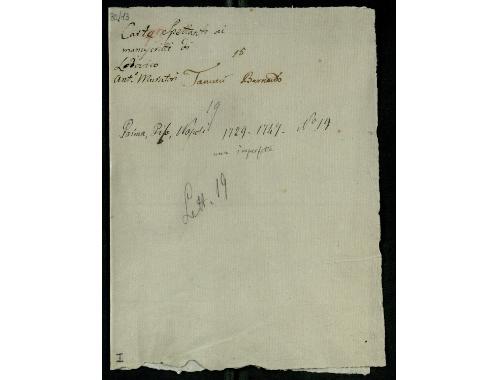 80/13
Carte Spettanti ai
manuscritti di
Lodovico
Ant.º Muratori
15
Tanucci Bernardo
19
Roma, Pisa, Napoli 1729-1747- Nº 19
una imperfetta
Lett. 19
I